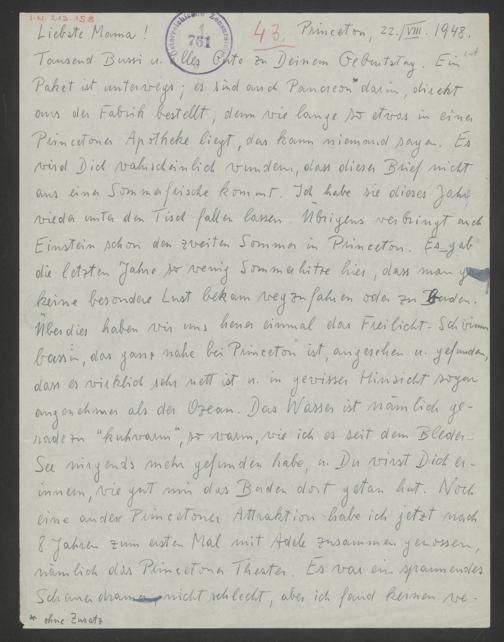 I.N. 213.158
Österreichische Zensurstelle
1
761
43.
Princeton, 22./VIII. 1948.
Liebste Mama!
Tausend Bussi u. alles Gute zu Deinem Geburtstag. Ein
Paket ist unterwegs; es sind auch Pancreon* darin, direkt
aus der Fabrik bestellt, denn wie lange so etwas in einer
Princetoner Apotheke liegt, das kann niemand sagen. Es
wird Dich wahrscheinlich wundern, dass dieser Brief nicht
aus einer Sommerfrische kommt. Ich habe sie dieses Jahr
wieder unter den Tisch fallen lassen. Übrigens verbringt auch
Einstein schon den zweiten Sommer in Princeton. Es gab
die letzten Jahre so wenig Sommerhitze hier, dass man
keine besondere Lust bekam wegzufahren oder zu Baden.
Überdies haben wir uns heuer einmal das Freilicht-Schwimm
bassin, das ganz nahe bei Princeton ist, angesehen u. gefunden,
dass es wirklich sehr nett ist u. in gewisser Hinsicht sogar
angenehmer als der Ozean. Das Wasser ist nämlich ge-
radezu "kuhwarm", so warm, wie ich es seit dem Bleder-
See nirgends mehr gefunden habe, u. Du wirst Dich er-
innern, wie gut mir das Baden dort getan hat. Noch
eine andere Princetoner Attraktion habe ich jetzt nach
8 Jahren zum ersten Mal mit Adele zusammen genossen,
nämlich das Princetoner Theater. Es war ein spannendes
Schauerdrama, nicht schlecht, aber ich fand keinen we-
* ohne Zusatz